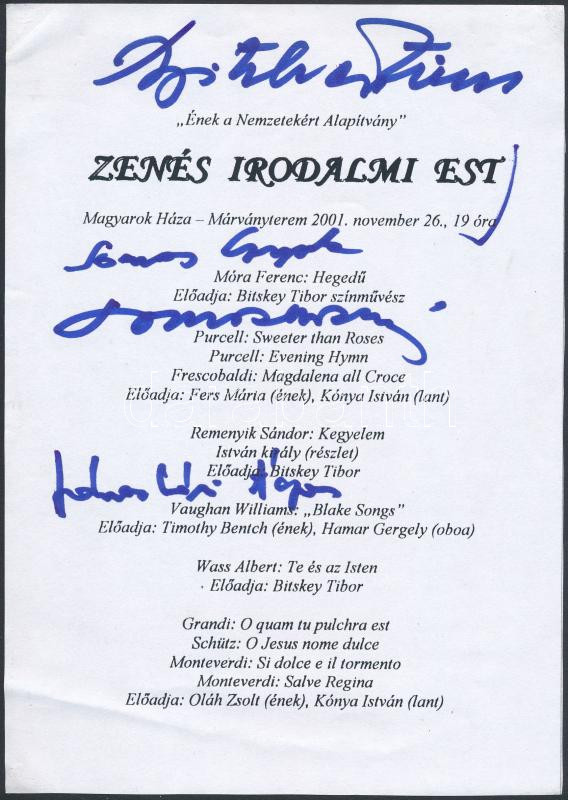 „Ének a Nemzetekért Alapítvány”
ZENÉS IRODALMI EST
Magyarok Háza – Márványterem 2001. november 26., 19 óra
Móra Ferenc: Hegedű
Előadja: Bitskey Tibor színművész
Purcell: Sweeter than Roses
Purcell: Evening Hymn
Frescobaldi: Magdalena all Croce
Előadja: Fers Mária (ének), Kónya István (lant)
Remenyik Sándor: Kegyelem
István király (részlet)
Előadja: Bitskey Tibor
Vaughan Williams: „Blake Songs”
Előadja: Timothy Bentch (ének), Hamar Gergely (oboa)
Wass Albert: Te és az Isten
Előadja: Bitskey Tibor
Grandi: O quam tu pulchra est
Schütz: O Jesus nome dulce
Monteverdi: Si dolce e il tormento
Monteverdi: Salve Regina
Előadja: Oláh Zsolt (ének), Kónya István (lant)